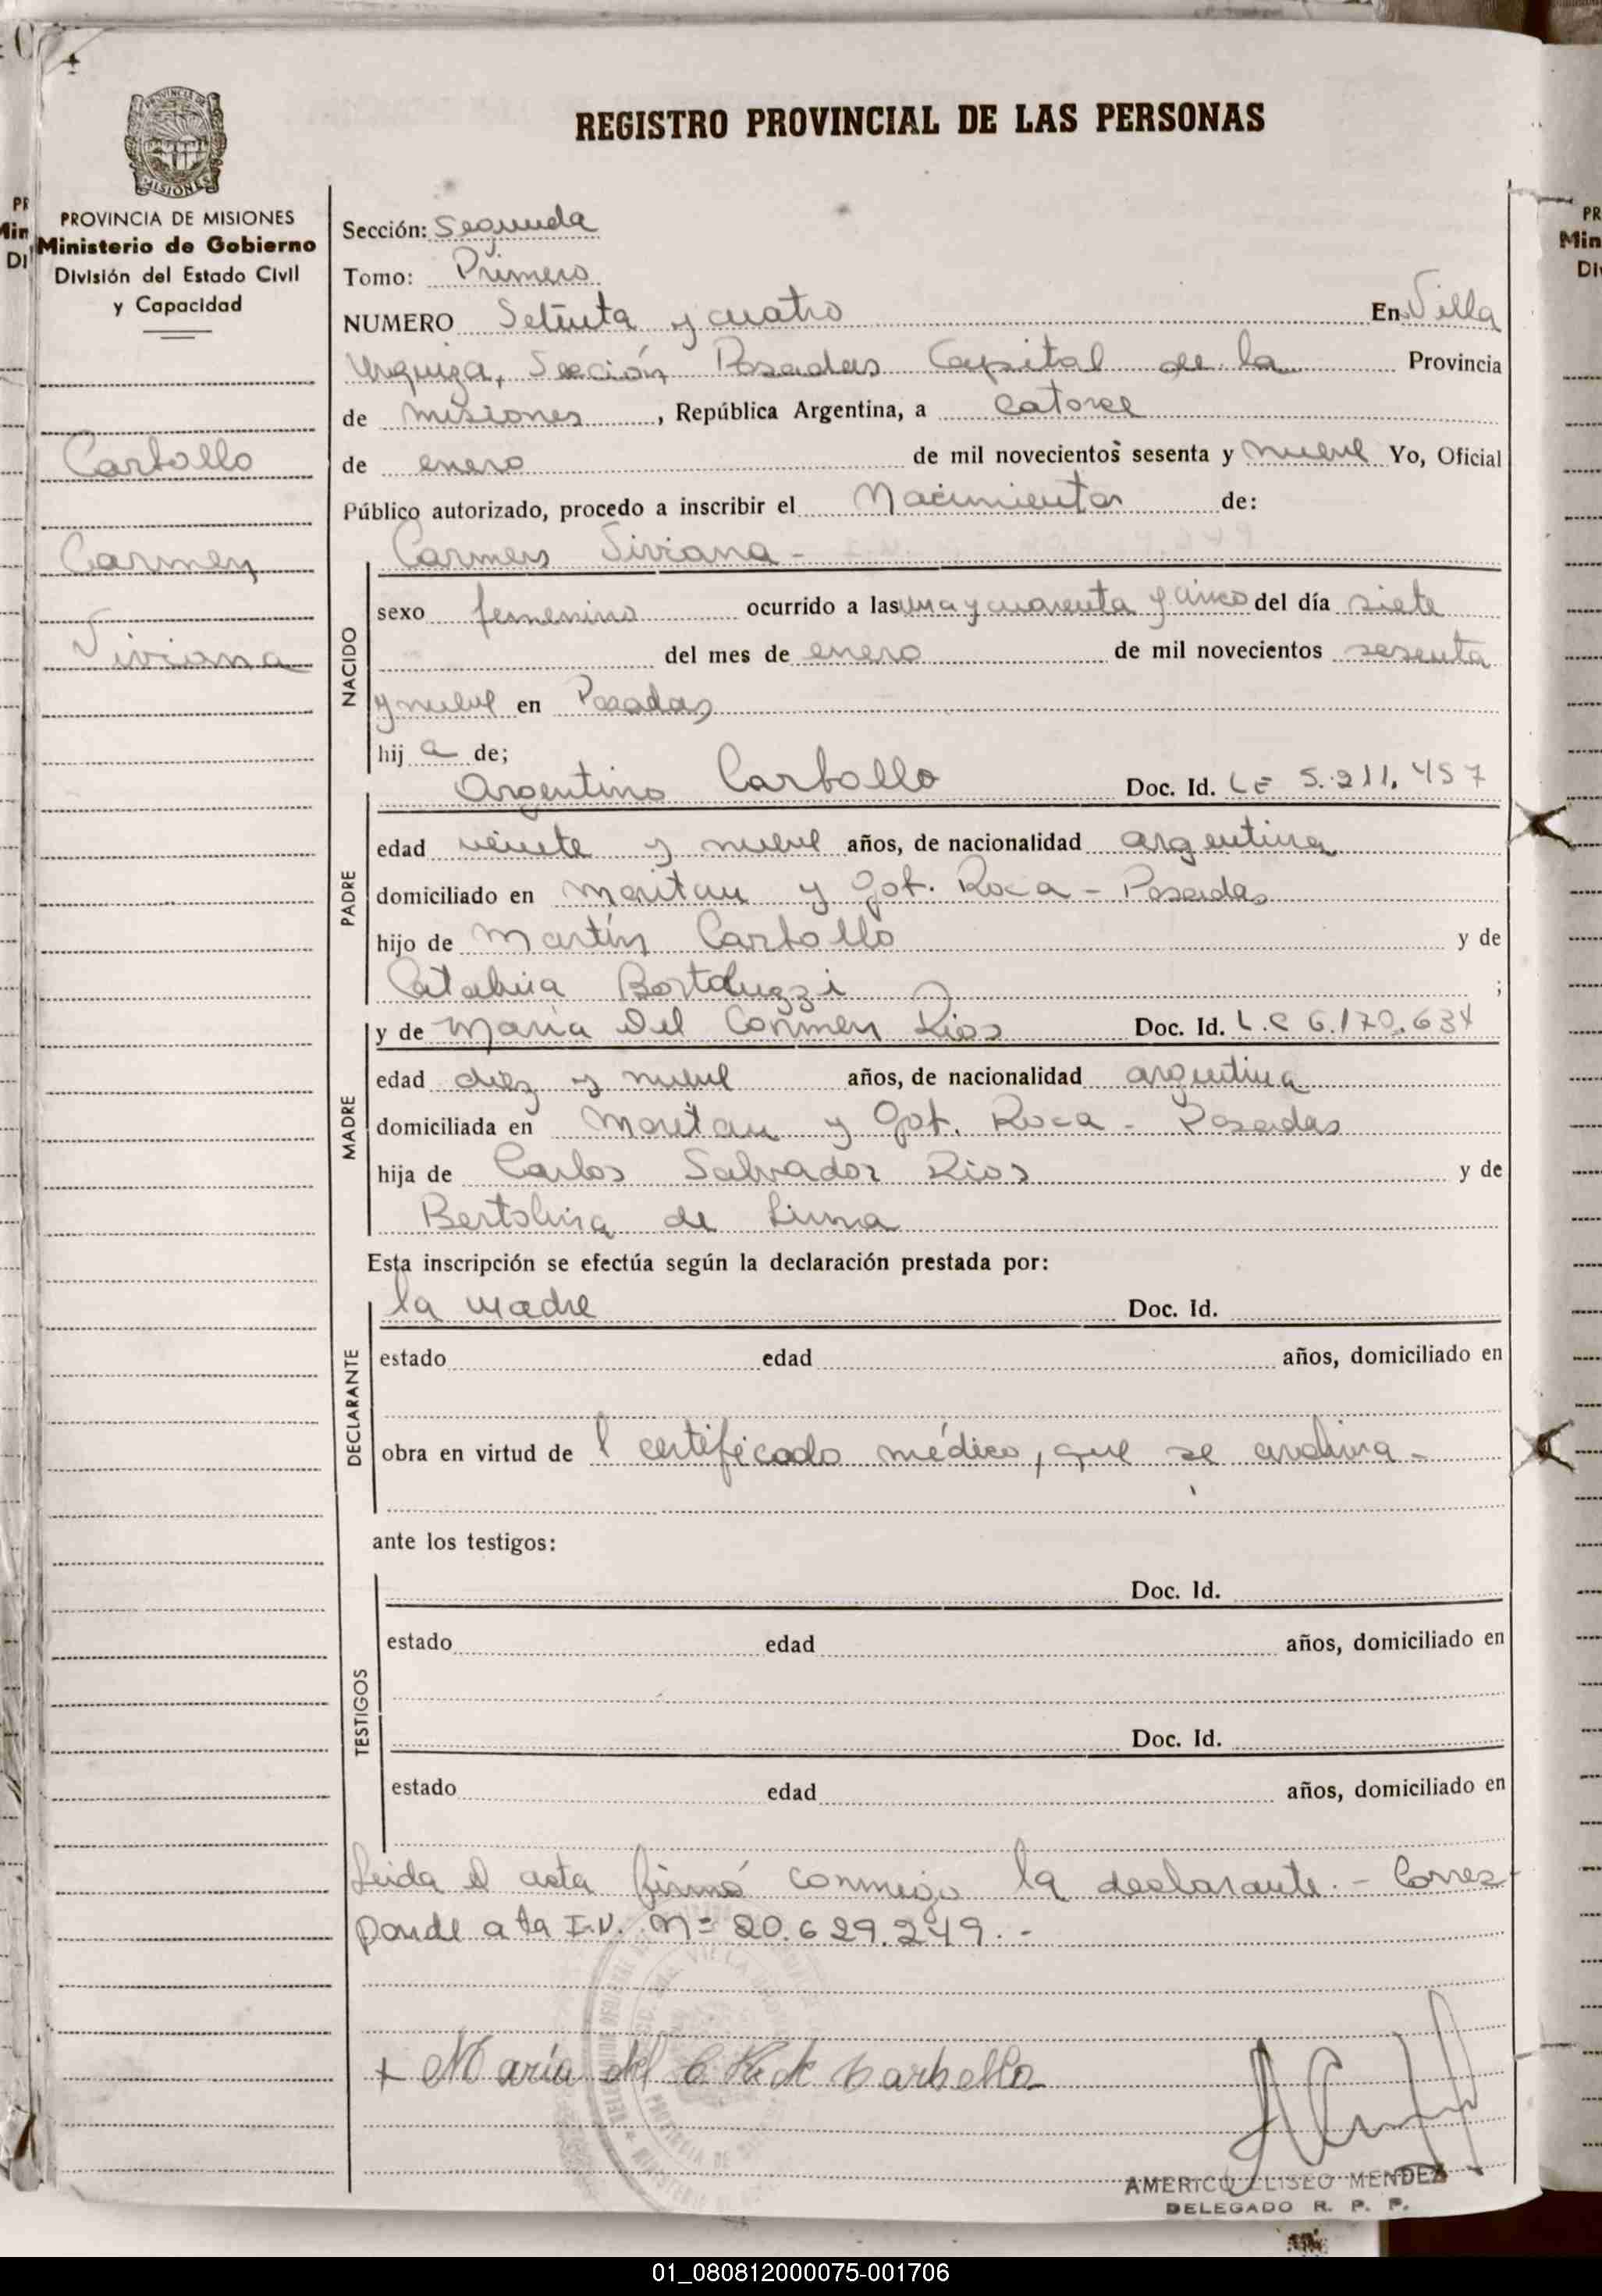 REGISTRO PROVINCIAL DE LAS PERSONAS
PROVINCIA DE MISIONES
Ministerio de Gobierno
División del Estado Civil
y Capacidad
Carbollo
Carmen
Viviana
Sección: Segunda
Tomo: Primero
NUMERO Setenta y cuatro En Villa
Urquiza, Sección Posadas Capital de la Provincia
de misiones, República Argentina, a catorce
de enero de mil novecientos sesenta y nueve Yo, Oficial
Público autorizado, procedo a inscribir el Nacimiento de:
Carmen Viviana -
NACIDO
sexo femenino ocurrido a las una y cuarenta y cinco del día siete
del mes de enero de mil novecientos sesenta
y nueve en Posadas
hija de;
PADRE
Argentino Carbollo Doc. Id. LE 5.211.457
edad veinte y nueve años, de nacionalidad argentina
domiciliado en y Gob. Roca - Posadas
hijo de Martín Carbollo y de
Catalina Bortoluzzi ;
MADRE
y de María Del Carmen Rios Doc. Id. L.C 6.170.634
edad diez y nueve años, de nacionalidad argentina
domiciliada en y Gob. Roca - Posadas
hija de Carlos Salvador Rios y de
Bertolina de Lima
Esta inscripción se efectúa según la declaración prestada por:
DECLARANTE
la madre Doc. Id.
estado edad años, domiciliado en
obra en virtud de l certificado médico, que se archiva -
ante los testigos:
TESTIGOS
Doc. Id.
estado edad años, domiciliado en
Doc. Id.
estado edad años, domiciliado en
Leida el acta firmó conmigo la declarante. - Corres
ponde a la I.N. Nº 20.629.249. -
+ María del C. R. de Carbollo
AMERICO ELISEO MENDEZ
DELEGADO R. P. P.
01_080812000075-001706